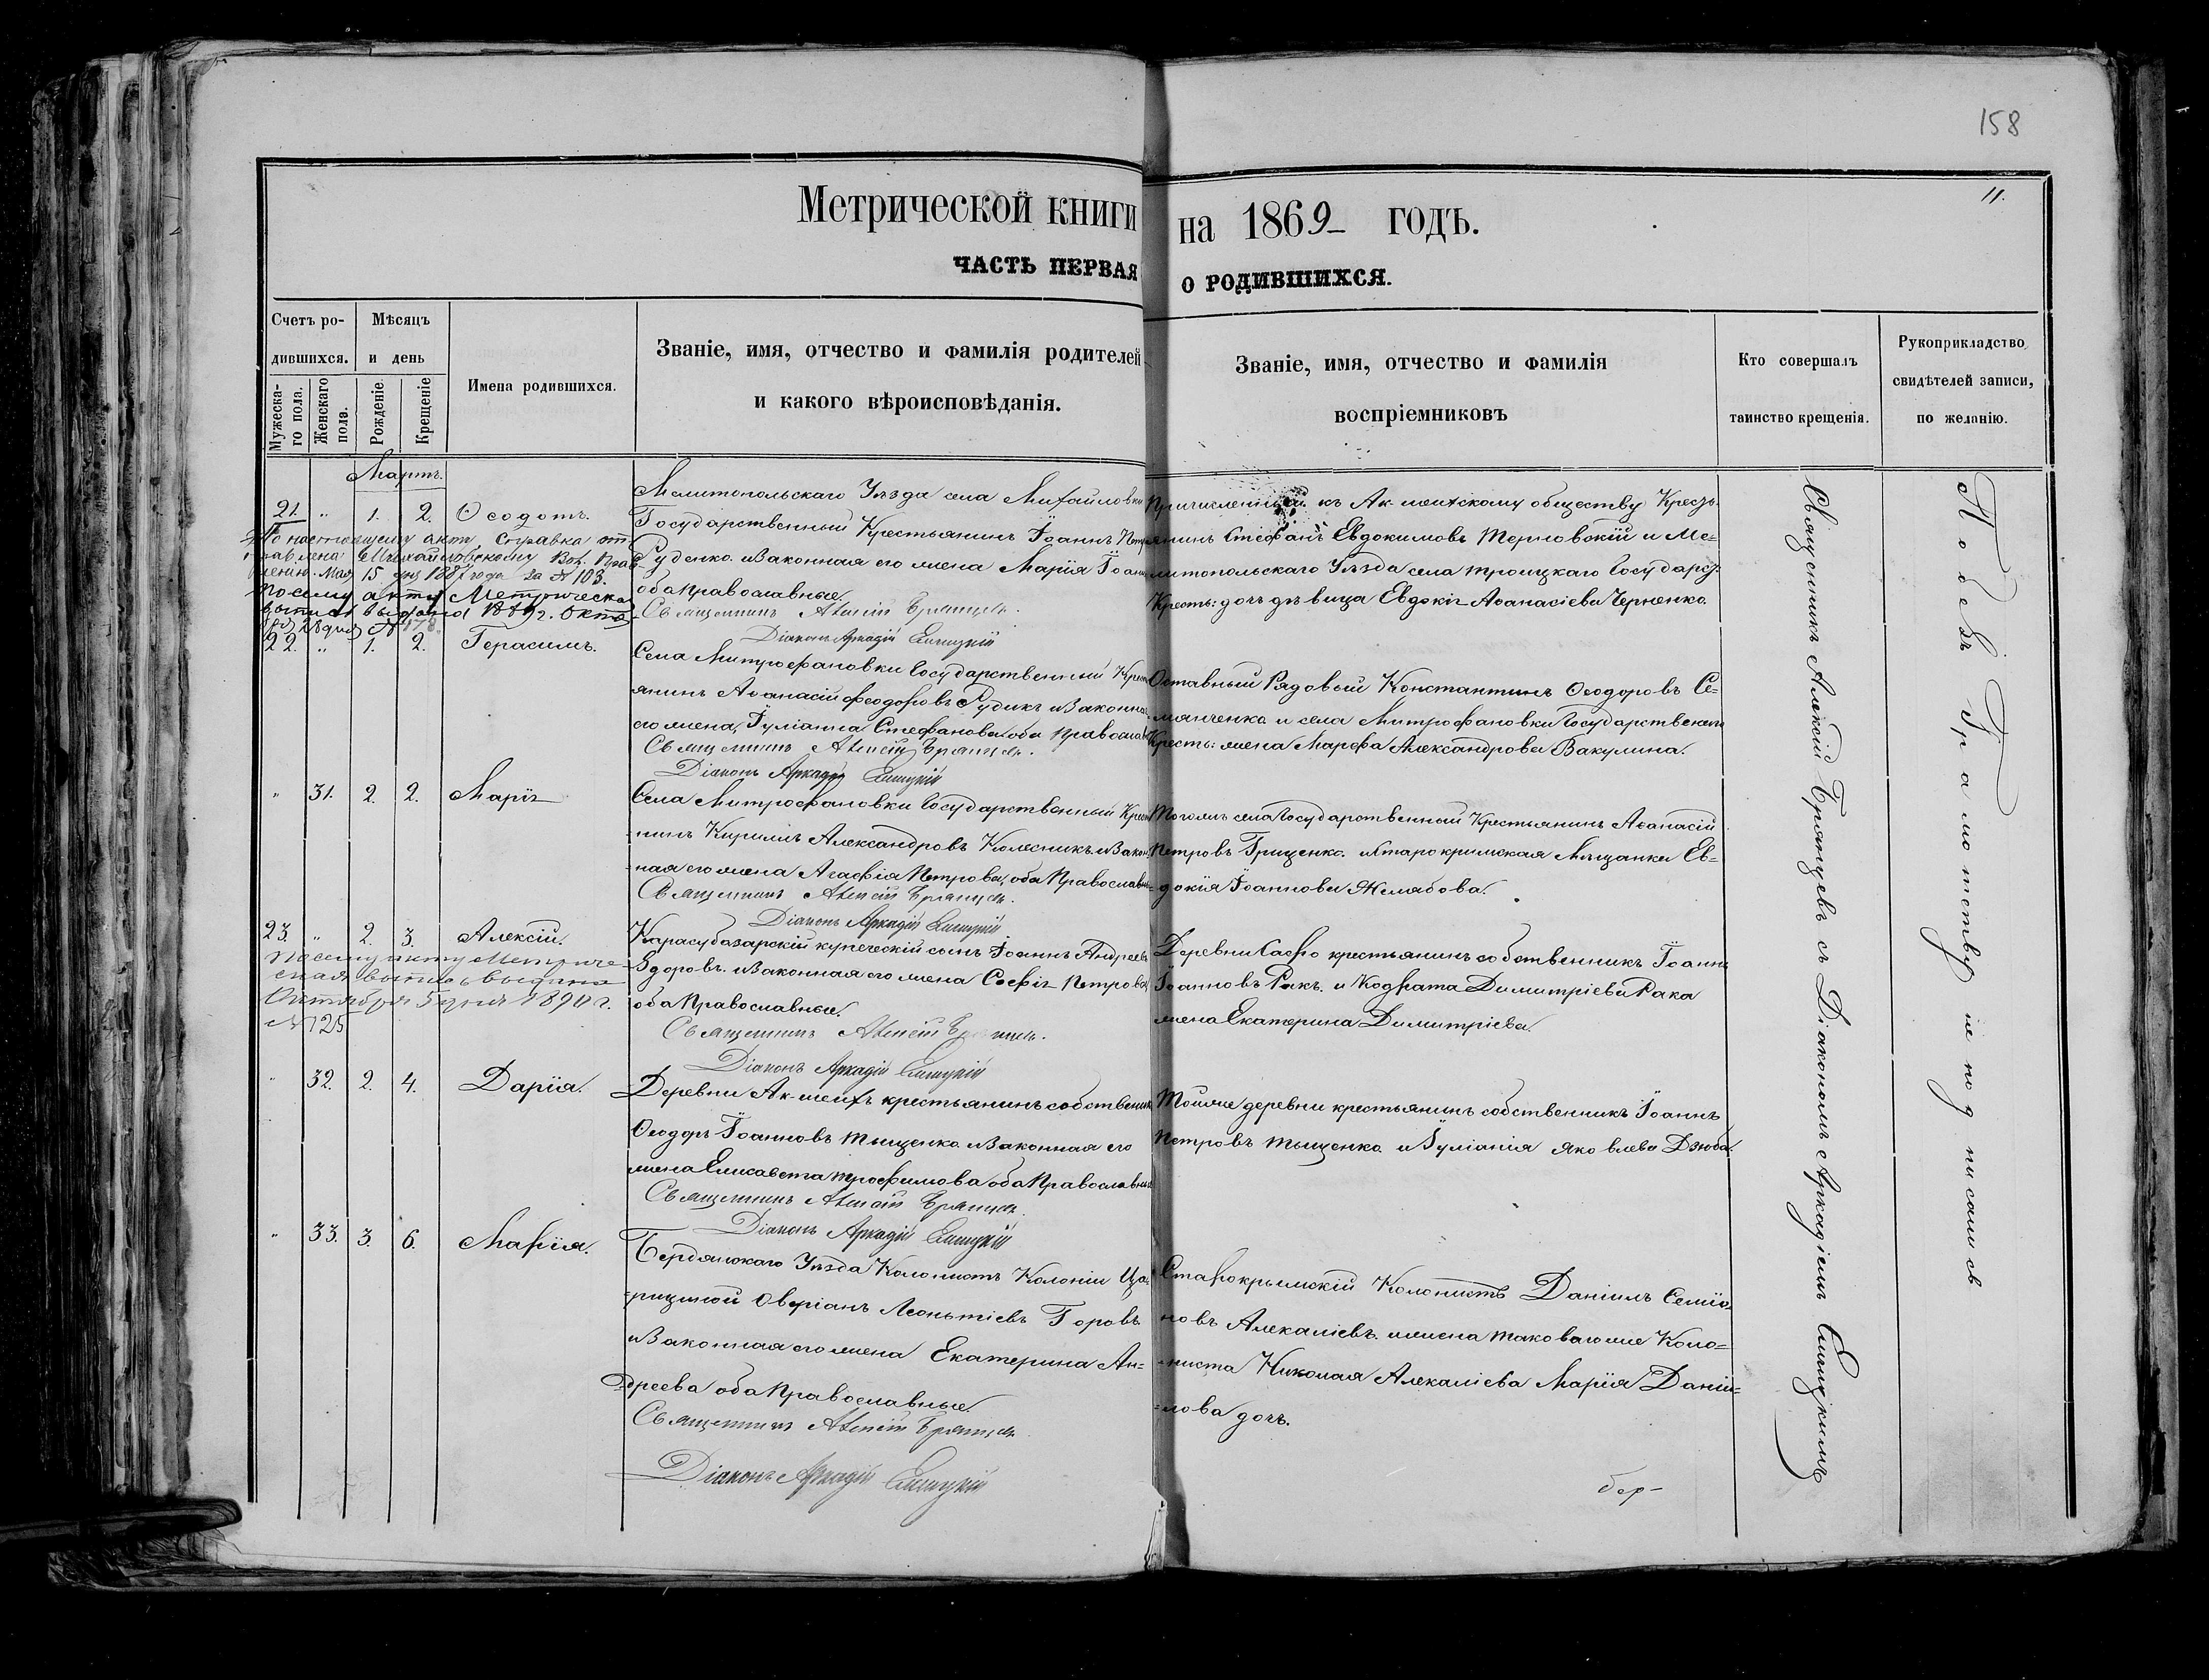 158
11.
Метрической книги на 1869 годъ.
ЧАСТЬ ПЕРВАЯ О РОДИВШИХСЯ.
Счетъ родившихся.
Мужескаго пола.
Женскаго пола.
Мѣсяцъ и день
Рожденіе
Крещеніе
Имена родившихся.
Званіе, имя, отчество и фамилія родителей
и какого вѣроисповѣданія.
Званіе, имя, отчество и фамилія
воспріемниковъ
Кто совершалъ
таинство крещенія.
Рукоприкладство
свидѣтелей записи,
по желанію.
Мартъ.
21. " 1. 2. Ѳеодотъ.
По настоящему акту справка от-
правлена Михайловскому Вол. Прав-
ленію. Мая 15 дня 1887 года за № 103.
По сему акту Метрическая
выпись выдана 1889 г. Октя
бря 28 дня № 178.
Мелитопольскаго Уѣзда села Михайловки
Государственный Крестьянинъ Іоаннъ Петр
Руденко и Законная его жена Марія Іоан
оба Православные.
Священникъ Алексій Брянцевъ.
Діаконъ Аркадій
Причисленный къ Ак-шеихскому обществу Кресть-
янинъ Стефанъ Евдокимовъ Терновскій и Ме-
литопольскаго Уѣзда села Троицкаго Государст:
Кресть: дочь дѣвица Евдокія Аѳанасіева Черненко.
22. " 1. 2. Герасимъ.
Села Митрофановки Государственный Крест
янинъ Аѳанасій Феодоровъ Рудикъ и Законна
его жена, Іуліанна Стефанова оба Православ
Священникъ Алексій Брянцевъ.
Діаконъ Аркадій
Отставный Рядовый Константинъ Ѳеодоровъ Се-
мянченко и села Митрофановки Государственнаго
Кресть: жена Марфа Александрова Вакулина.
" 31. 2. 2. Марія
Села Митрофановки Государственный Крест
нинъ Кириллъ Александровъ Колесникъ и Закон
ная его жена Агафія Петрова, оба Православные
Священникъ Алексій Брянцевъ.
Діаконъ Аркадій
Тогожъ села Государственный Крестьянинъ Аѳанасій
Петровъ Грищенко и Старокримская Мѣщанка Ев-
докія Іоаннова Желябова.
23. " 2. 3. Алексій.
По сему акту Метриче-
ская выпись выдана
Октября 5 дня 1890 г.
№ 125
Карасубазарскій купеческій сынъ Іоаннъ Андреевъ
Здоровъ и Законная его жена Софія Петрова
оба Православные.
Священникъ Алексій Брянцевъ.
Діаконъ Аркадій
Деревни крестьянинъ собственникъ Іоаннъ
Іоанновъ Ракъ и Кодрата Димитріева Рака
жена Екатерина Димитріева.
" 32. 2. 4. Дарія.
Деревни Ак-шеихъ крестьянинъ собственник
Ѳеодоръ Іоанновъ Тыщенко и Законная его
жена Елисавета Трофимова оба Православные
Священникъ Алексій Брянцевъ.
Діаконъ Аркадій
Тойже деревни крестьянинъ собственникъ Іоаннъ
Петровъ Тыщенко и Іуліанія Яковлева Дзюба.
" 33. 3. 6. Марія.
Бердянскаго Уѣзда Колонистъ Колоніи Ца-
рициной Аверіанъ Леонтіевъ Горовъ
и Законная его жена Екатерина Ан-
дреева оба Православные.
Священникъ Алексій Брянцевъ
Діаконъ Аркадій
Старокрымскій Колонистъ Даніилъ Семіо-
новъ Алекаліевъ и жена таковагоже Коло-
ниста Николая Алекаліева Марія Даніи-
лова дочь.
Священникъ Алексій Брянцевъ съ Діакономъ Аркадіемъ
грамотству не подписались